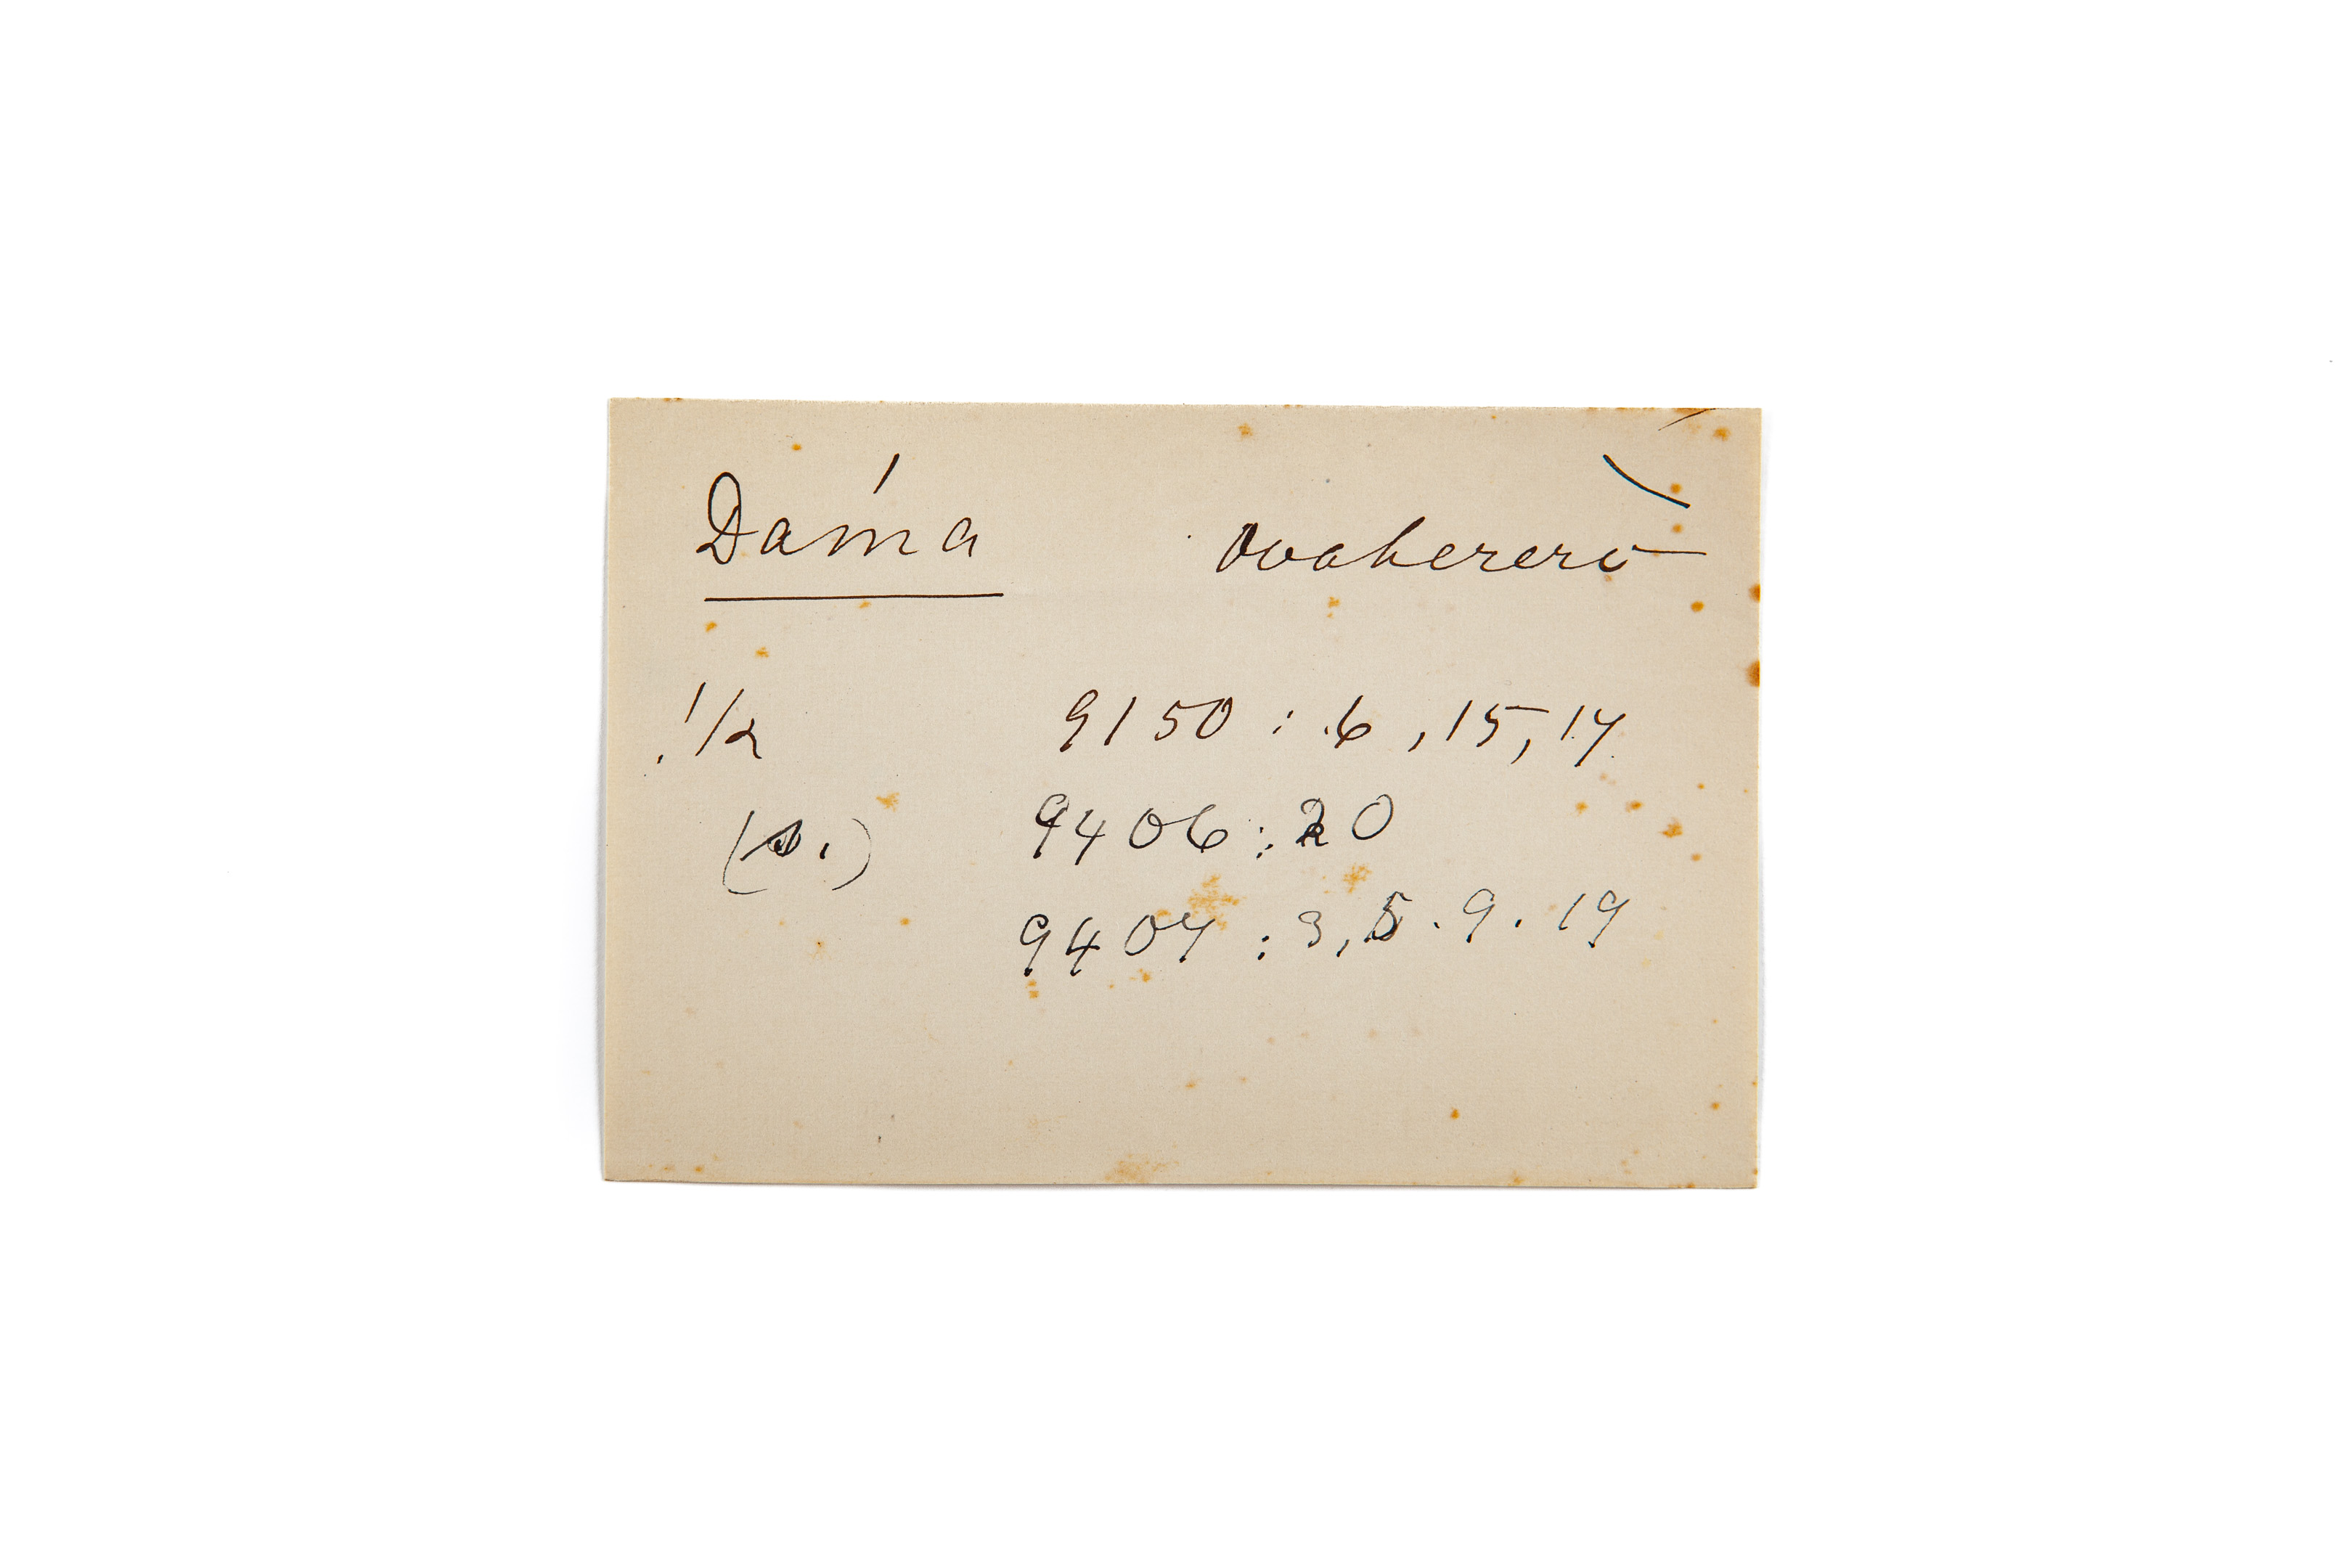 Dáma Ovahererò
!k 9150 : 6, 15, 17
(s.) 9406 : 20
9407 : 3, 5. 9. 19